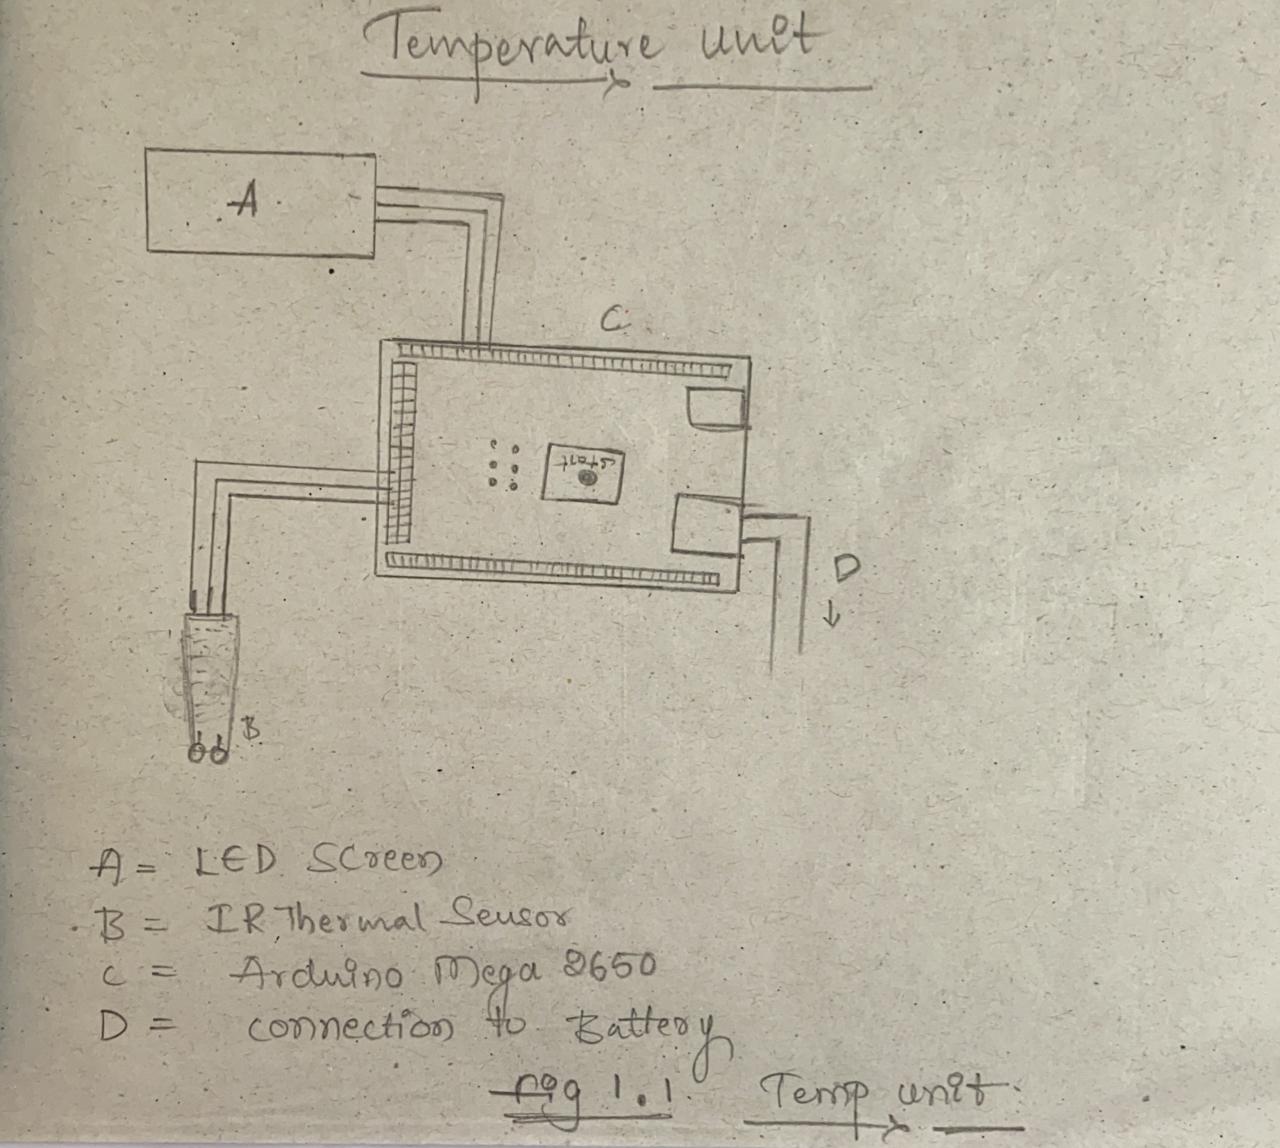 Temperature unit
A
C
start
D
B
A = LED Screen
B = IR Thermal Sensor
C = Arduino Mega 2650
D = connection to Battery
Fig 1.1 Temp unit